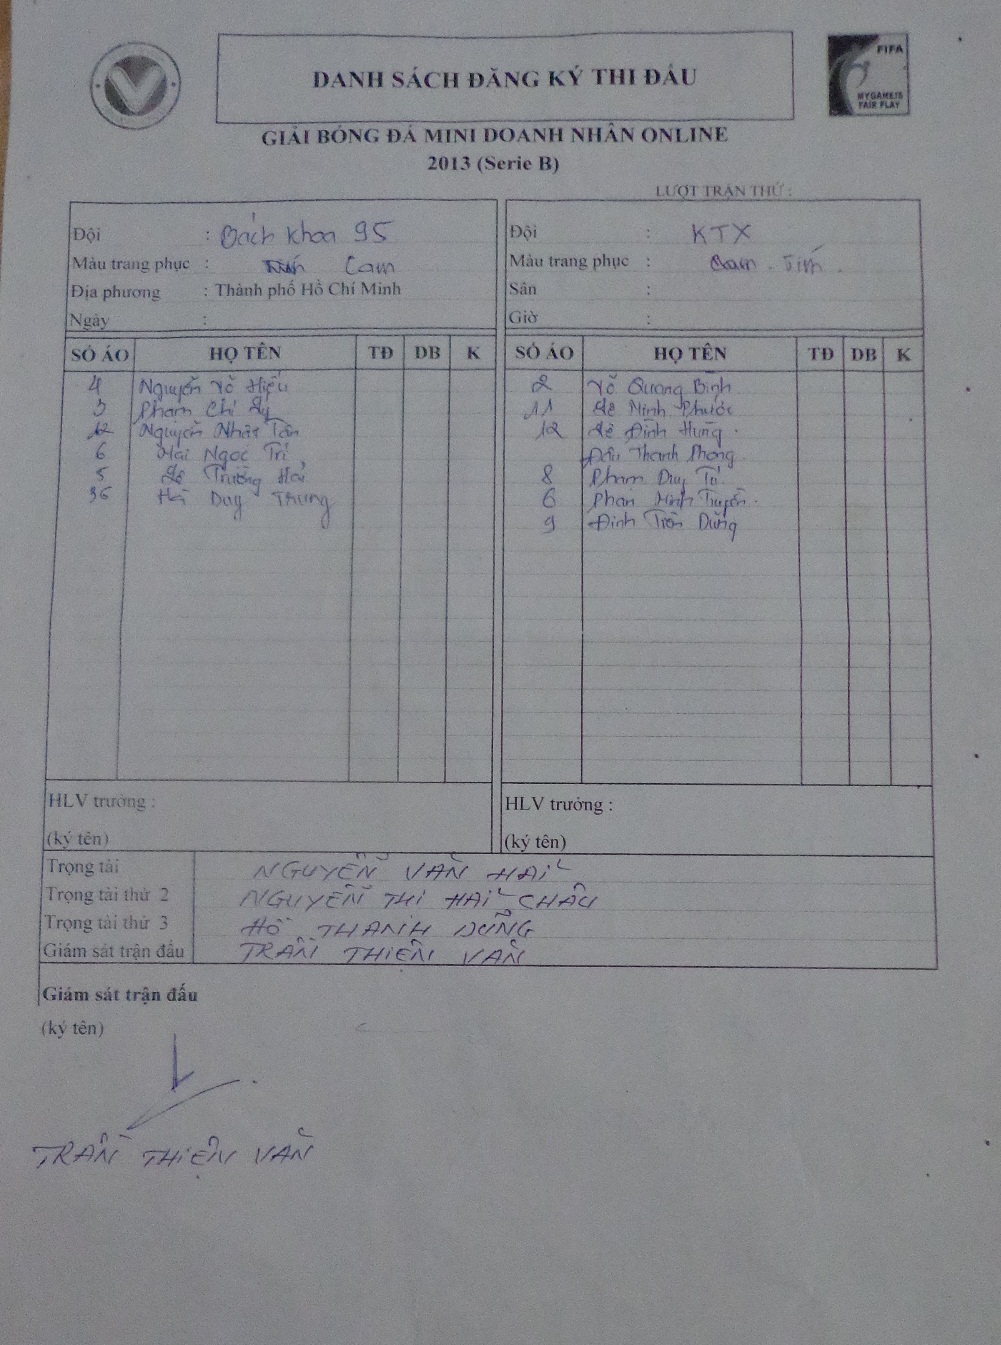 FIFA
MY GAME IS
FAIR PLAY
DANH SÁCH ĐĂNG KÝ THI ĐẤU
GIẢI BÓNG ĐÁ MINI DOANH NHÂN ONLINE
2013 (Serie B)
LƯỢT TRẬN THỨ :
Đội : Bách khoa 95
Màu trang phục : Cam
Địa phương : Thành phố Hồ Chí Minh
Ngày :
Đội : KTX
Màu trang phục : Tím
Sân :
Giờ :
SỐ ÁO HỌ TÊN TĐ DB K
4 Nguyễn Võ Hiếu
3 Phạm Chí
12 Nguyễn Nhật Tân
6 Mai Ngọc Trí
5 Lê Trường Hải
96 Hà Duy Trung
SỐ ÁO HỌ TÊN TĐ DB K
2 Võ Quang Bình
11 Lê Minh Phước
12 Lê Đình Hưng
Đậu Thanh Phong
8 Phạm Duy Tú
6 Phan Minh Tuyến
9 Đinh Trần Dũng
HLV trưởng :
(ký tên)
HLV trưởng :
(ký tên)
Trọng tài NGUYỄN VĂN HẢI
Trọng tài thứ 2 NGUYỄN THỊ HẢI CHÂU
Trọng tài thứ 3 HỒ THANH DŨNG
Giám sát trận đấu TRẦN THIỆN VĂN
Giám sát trận đấu
(ký tên)
TRẦN THIỆN VĂN